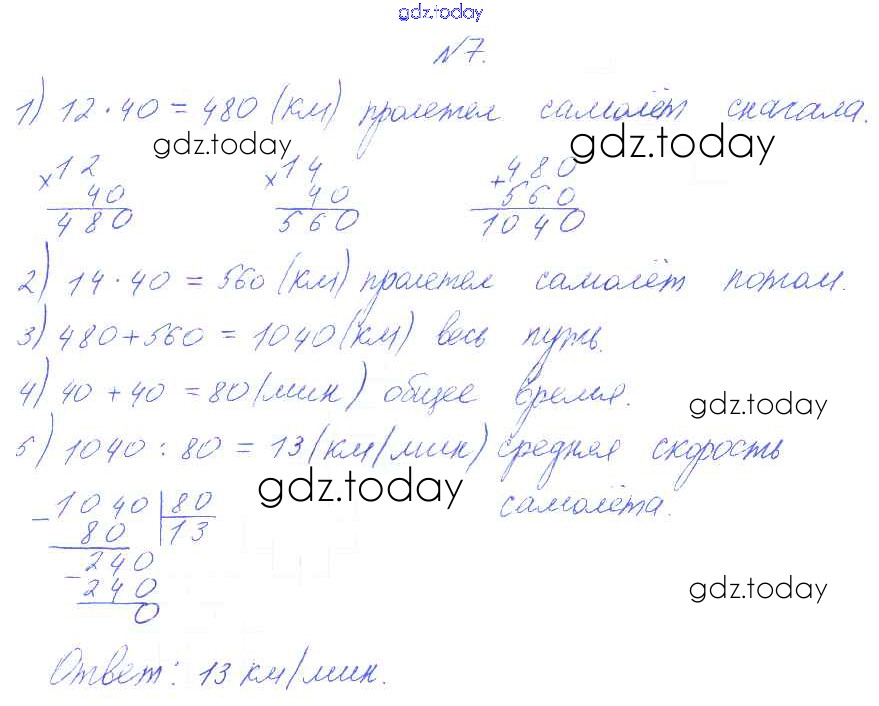 gdz.today
№7.
1) 12·40=480 (км) пролетел самолёт сначала.
gdz.today
gdz.today
×12
40
480
×14
40
560
+480
560
1040
2) 14·40=560 (км) пролетел самолёт потом.
3) 480+560=1040 (км) весь путь.
4) 40+40=80 (мин) общее время.
gdz.today
5) 1040:80=13 (км/мин) средняя скорость
самолёта.
gdz.today
-1040|80
80 |13
-240
240
0
gdz.today
Ответ: 13 км/мин.